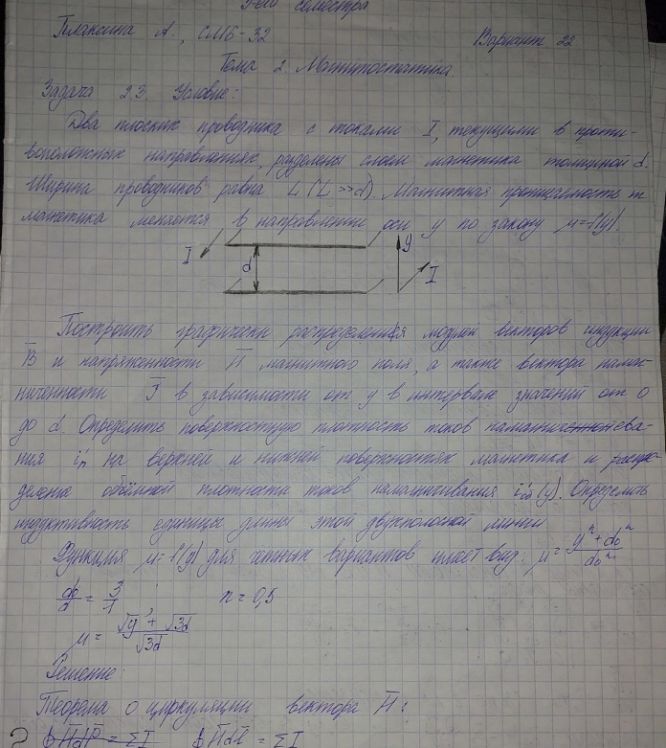 семестра
Плаксина А., СМБ-32 Вариант 22
Тема 2. Магнитостатика
Задача 2.3. Условие:
Два плоских проводника с токами I, текущими в проти-
воположных направлениях, разделены слоем магнетика толщиной d.
Ширина проводников равна L (L >> d). Магнитная проницаемость
магнетика меняется в направлении оси y по закону μ=f(y).
I d y I
Построить графически распределения модулей векторов индукции
B и напряженности H магнитного поля, а также вектора намаг-
ниченности J в зависимости от y в интервале значений от 0
до d. Определить поверхностную плотность токов намагничива-
ния i'п на верхней и нижней поверхностях магнетика и распре-
деление объёмной плотности токов намагничивания i'об(y). Определить
индуктивность единицы длины этой двухполосной линии
Функция μ=f(y) для четных вариантов имеет вид: μ = (yⁿ+d₀ⁿ)/d₀ⁿ
d₀/d = 3/1 n = 0,5
μ = (√y + √3d)/√3d
Решение:
Теорема о циркуляции вектора H:
∮Hdl = ΣI